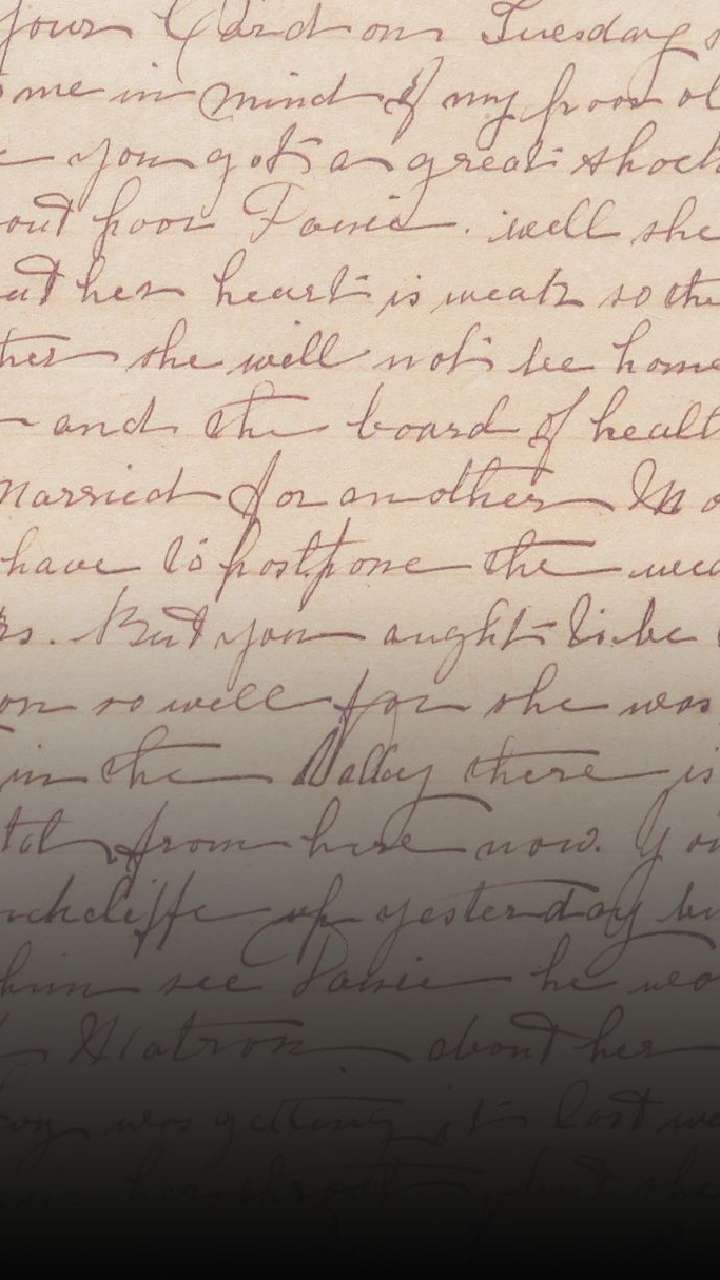 your Card on Tuesday
me in mind of my poor ol
you got a great shock
out poor Daisie. well she
her heart is weak so the
she will not be home
and the board of healt
married for another Mo
have to postpone the wed
rs. But you aught to be
on so well for she was
in the Valley there is
from here now. Yo
nckcliffe up yesterday bu
him see Daisie he wo
Matron about her
was getting it last we
her throat but she